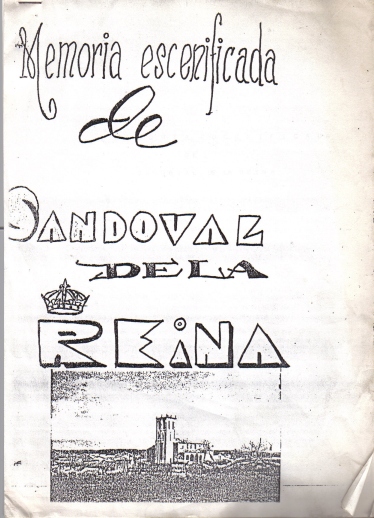 Memoria escenificada
de
SANDOVAL
DE LA
REiNA